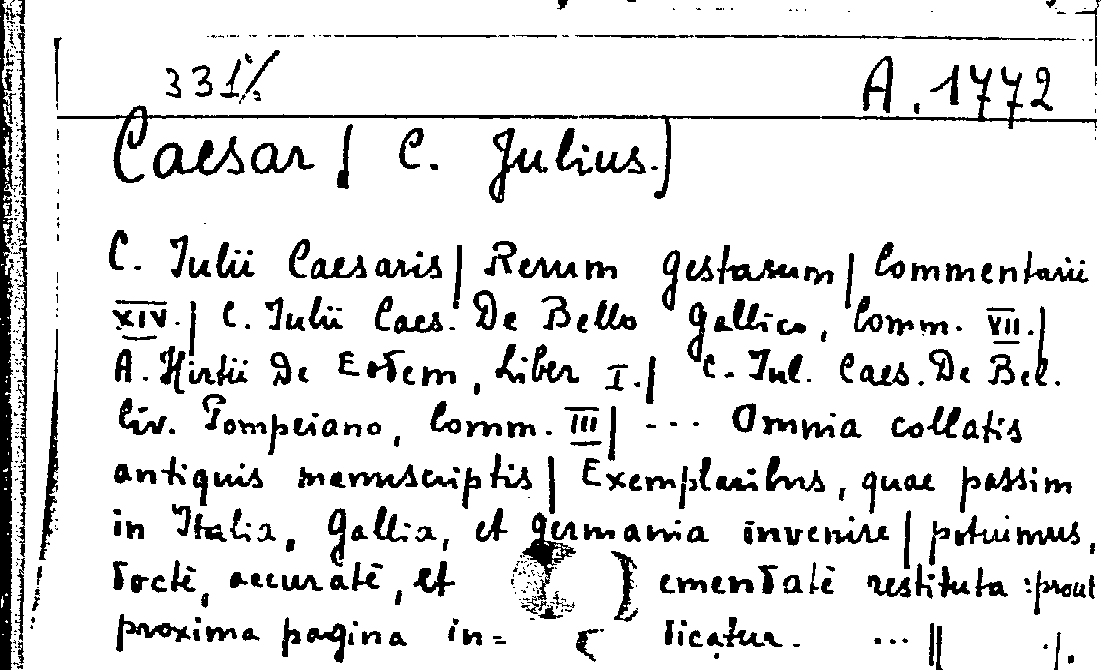 331%
A. 1772
Caesar ( C. Julius.)
C. Iulii Caesaris | Rerum Gestarum | Commentarii
XIV. | C. Iulii Caes. De Bello Gallico, Comm. VII. |
A. Hirtii De Eodem, Liber I. | C. Iul. Caes. De Bel.
Civ. Pompeiano, Comm. III | --- Omnia collatis
antiquis manuscriptis | Exemplaribus, quae passim
in Italia, Gallia, et Germania invenire | potuimus,
doctè, accuratè, et emendatè restituta : prout
proxima pagina in= dicatur. ... || ./.